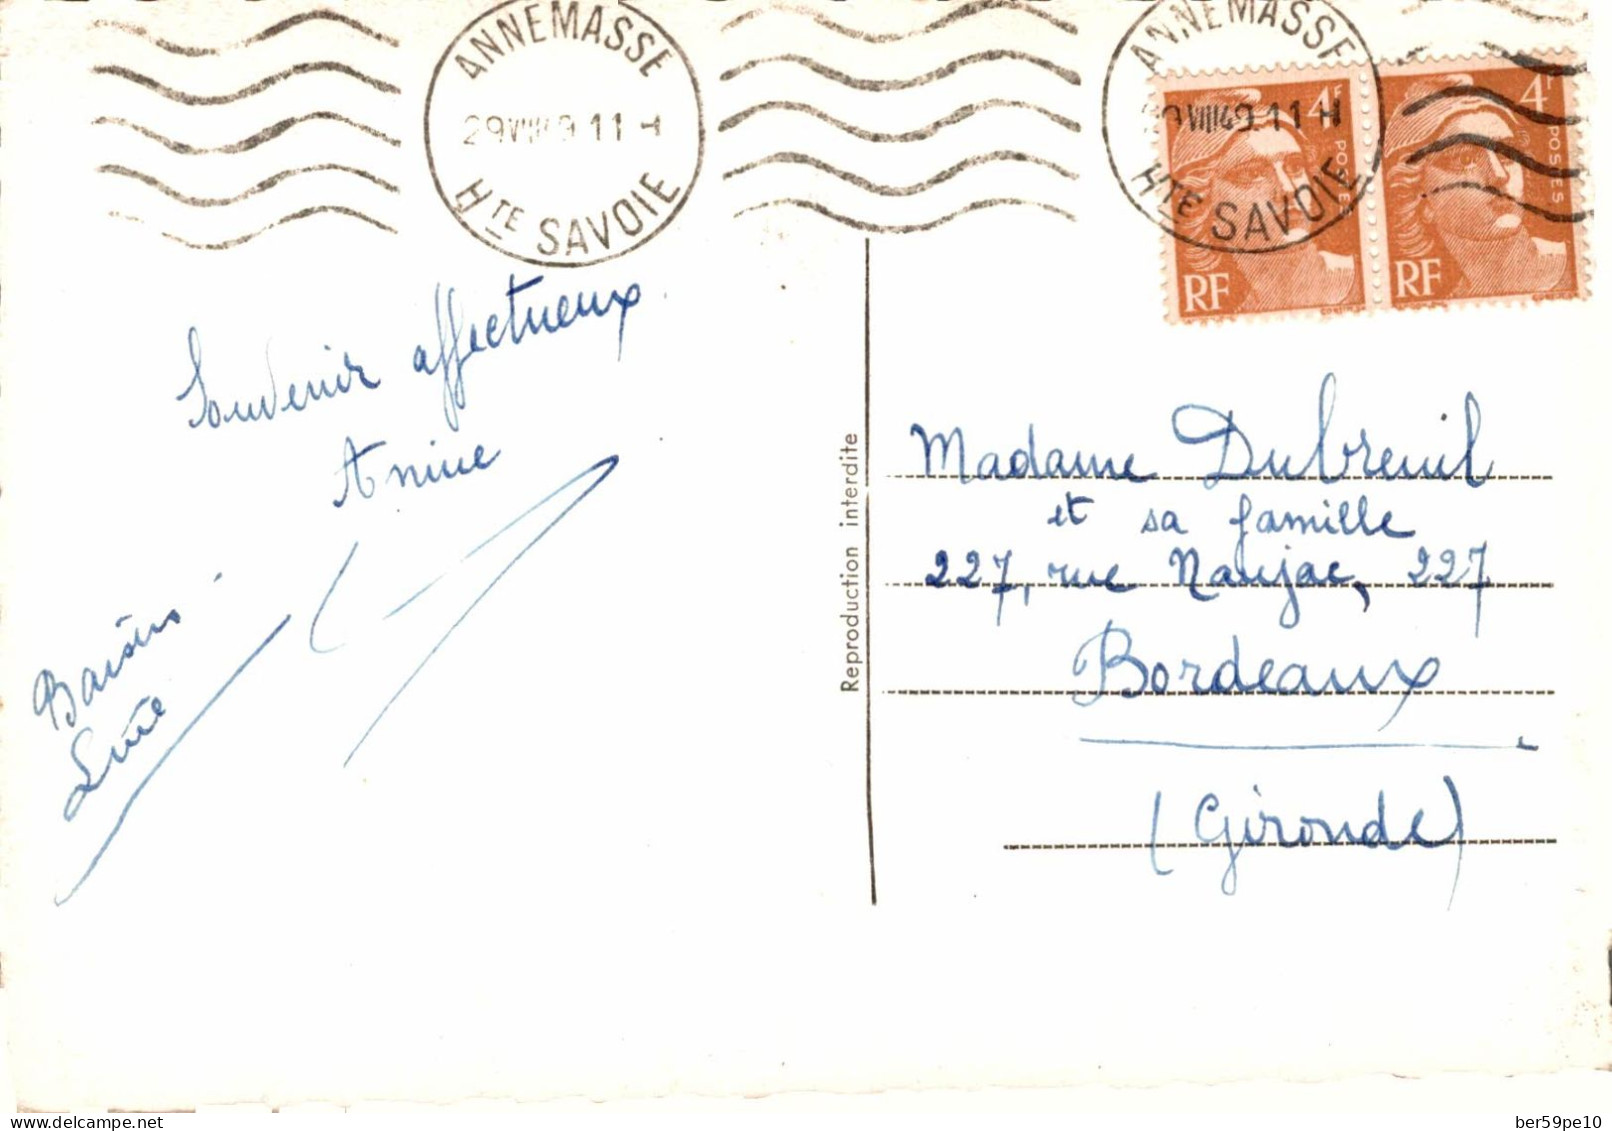 ANNEMASSE
29 VIII 49 11 H
HTE SAVOIE
ANNEMASSE
29 VIII 49 11 H
HTE SAVOIE
4F
POSTES
RF
4F
POSTES
RF
Souvenir affectueux
Annie
Baisers
Reproduction interdite
Madame Dubreuil
et sa famille
227, rue Naujac, 227
Bordeaux
(Gironde)
www.delcampe.net
ber59pe10